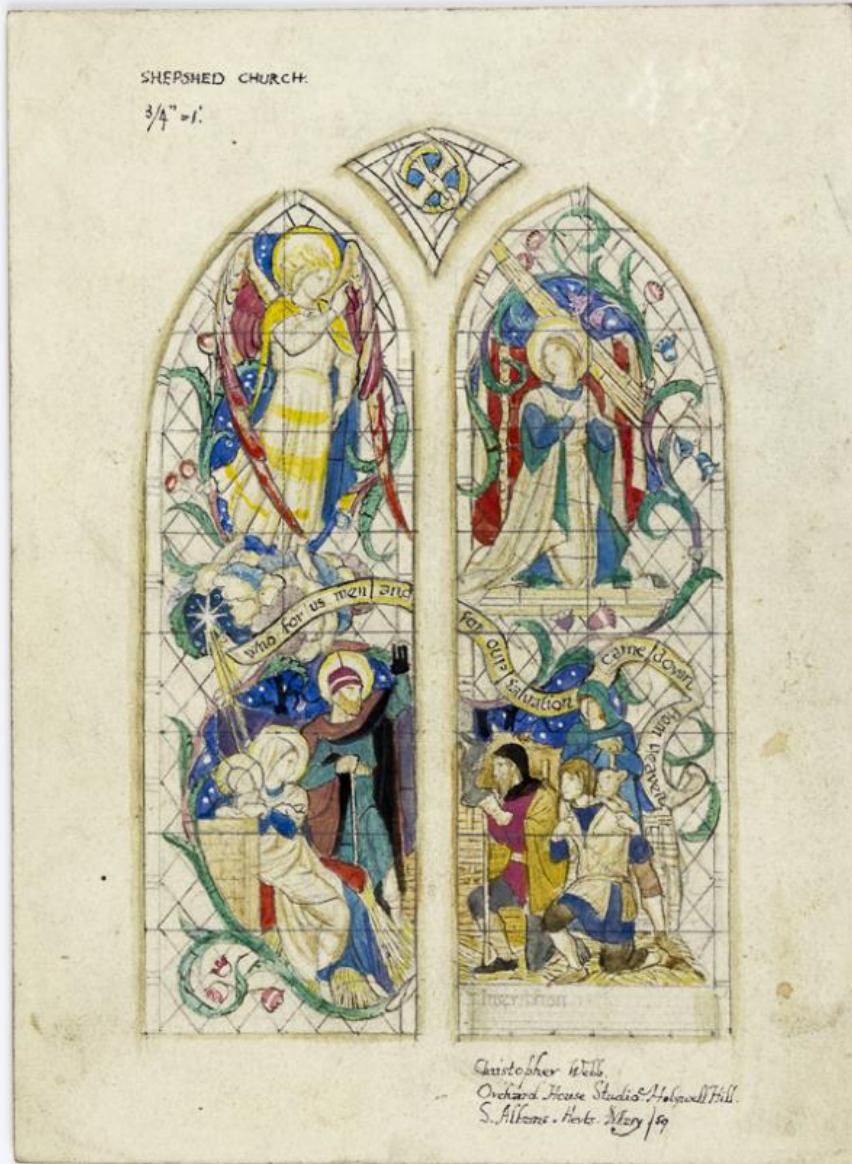 SHEPSHED CHURCH.
3/4" = 1'.
who for us men and
for our salvation
came down
from heaven
Inscription
Christopher Webb.
Orchard House Studio Holywell Hill.
S. Albans. Herts. May/59